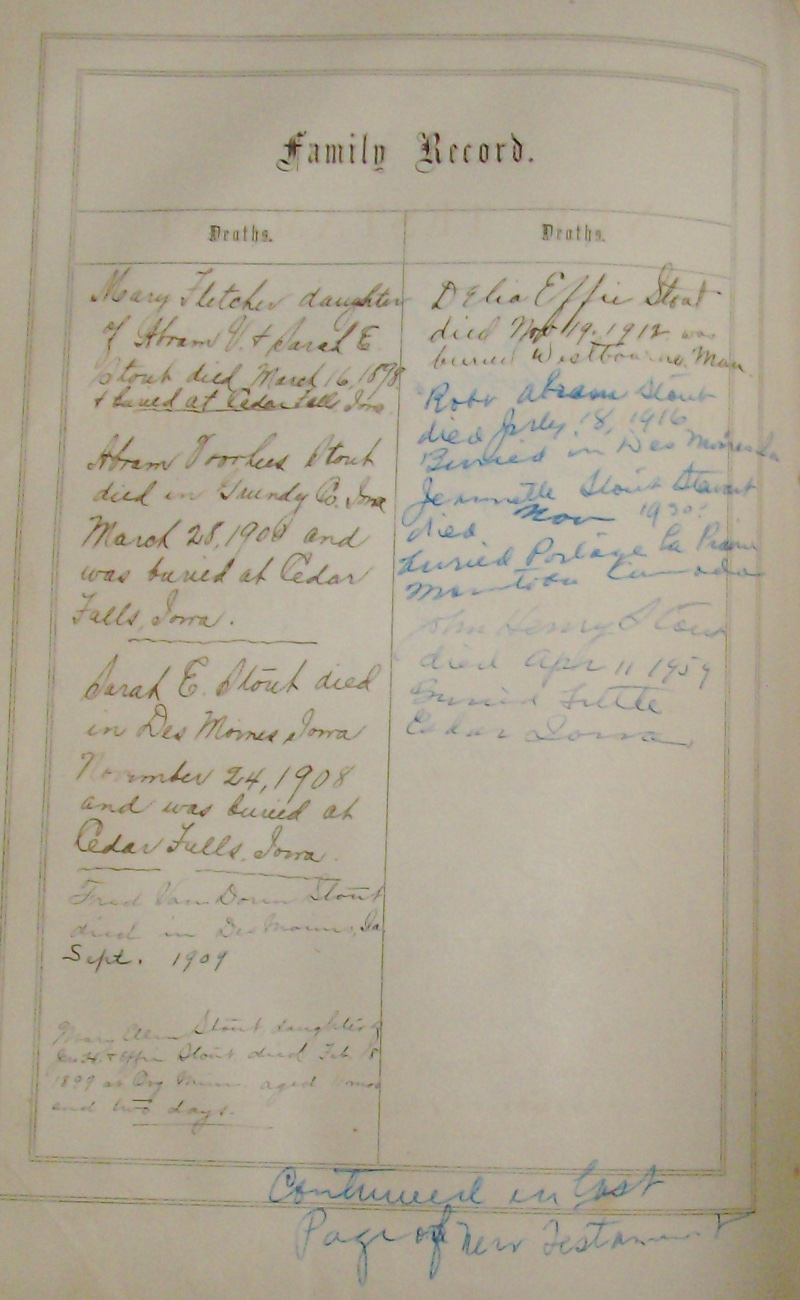 Family Record.
Deaths.
Mary Fletcher daughter
of Abram V. & Sarah E
Stout died March 16, 1878
& buried at Cedar Falls Iowa
Abram Voorhees Stout
died in Grundy Co. Iowa
March 28, 1900 and
was buried at Cedar
Falls, Iowa.
Sarah E. Stout died
in Des Moines Iowa
November 24, 1908
and was buried at
Cedar Falls, Iowa.
Fred Van Doren Stout
died in Des Moines, Ia
Sept. 1909
Mary Ellen Stout daughter of
Jno. H. & Effie Stout died Feb 18
1899 at Org Minn. aged mos
and two days.
Deaths.
Delia Effie Stout
died Nov 19. 1912 was
buried Westbourne, Man
Robr Abram Stout
died July 18, 1916
Buried in Des Moines Ia
Jeannette Stout Stewart
died Nov 1930?
buried Portage La Prairie
Manitoba Canada
John Henry Stout
died Apr 11 1959
Buried Little
Cedar Iowa
Continued in last
Page of New Testament